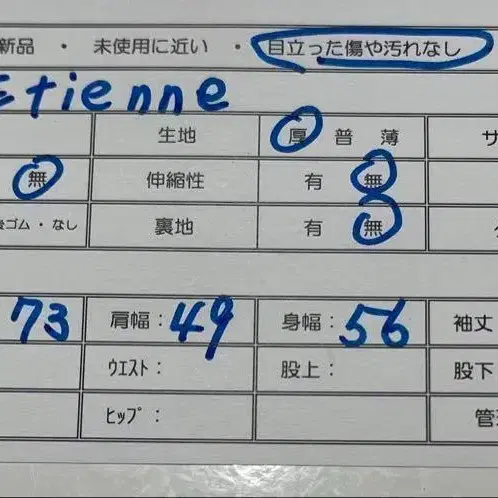 新品 ・ 未使用に近い ・ 目立った傷や汚れなし
Etienne
生地 厚 普 薄 サ
無 伸縮性 有 無
ゴム ・ なし 裏地 有 無
73 肩幅：49 身幅：56 袖丈
ウエスト： 股上： 股下
ヒップ： 管理